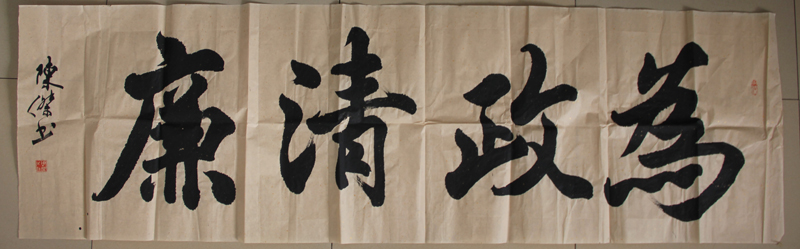 為政清廉
陳傑书